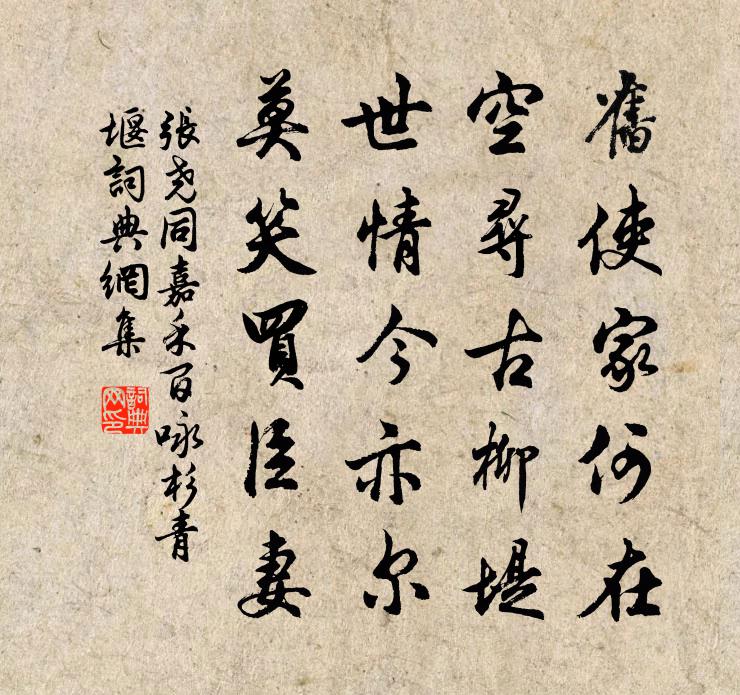 舊使家何在
空尋古柳堤
世情今亦尔
莫笑買臣妻
張尧同嘉禾百咏杉青
堰詞典網集
詞典网印